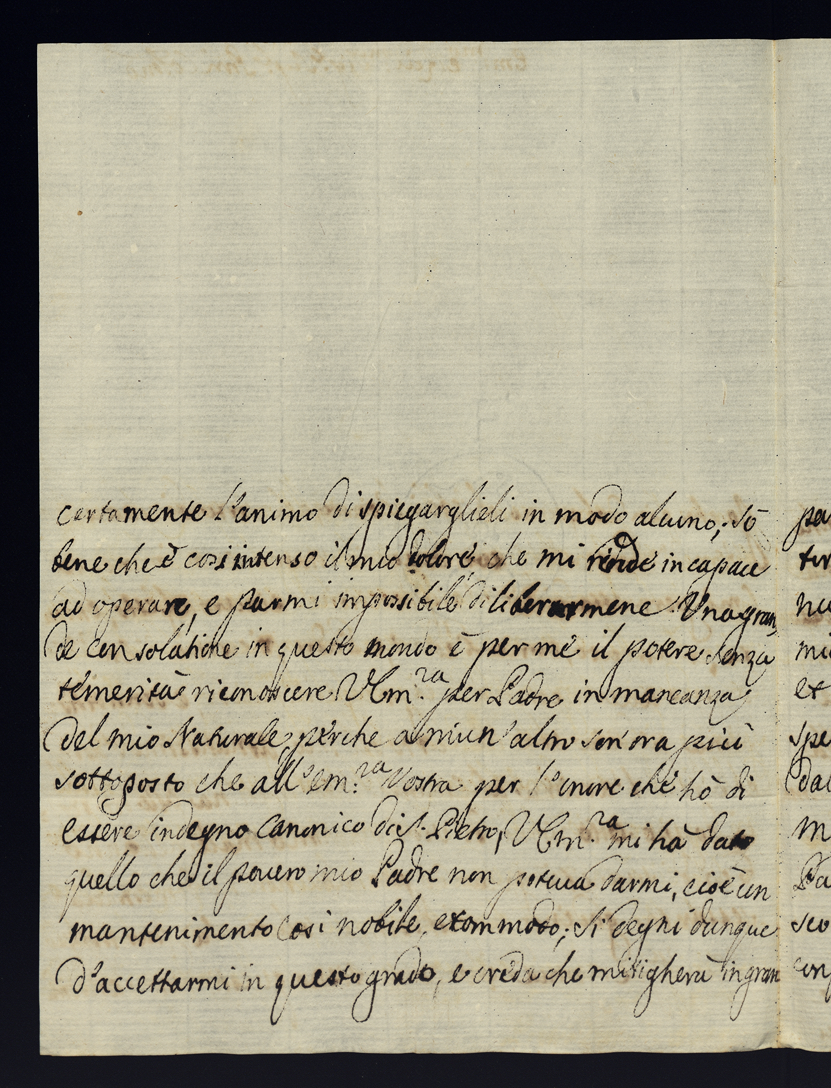 certamente l'animo di spiegarglieli in modo alcuno; sò
bene che è cosi intenso il mio dolore che mi rende incapace
ad operare, e parmi impossibile di liberarmene. Una gran,
de consolatione in questo mondo è per me il potere senza
temerità riconoscere VEm.ra per Padre in mancanza
del mio Naturale, perche a niun'altro son'ora più
sottoposto che all'em.za Vostra per l'onore che hò di
essere indegno canonico di S. Pietro, VEm.ra mi hà dato
quello che il povero mio Padre non poteva darmi, cioè un
mantenimento cosi nobile, e commodo; si degni dunque
d'accettarmi in questo grado, e creda che mitigherà in gran
pa
ter
nu
mi
et
spe
dal
m
Pa
sco
con